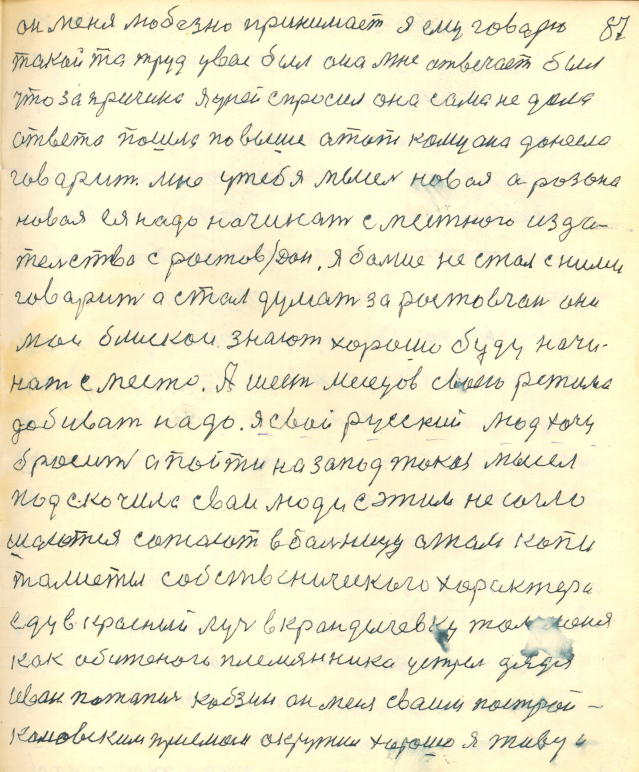 он меня любезно принимает я ему говорю 87
такой та труд увас был она мне отвечает был
что за причина я уней спросил она сама не дала
ответа пошла повыше а тот кому она донесла
говарит. мне утебя мысел новая а розона
новая ея надо начинат с местного изда-
телства с ростов/Дон. я болше не стал с ними
говарит а стал думат за ростовчан они
мои блиские знают хорошо буду начи-
нат с место. А шест месецов своего ретила
добиват надо. я свой русский люд хочу
бросит а пойти на запад такая мысел
подскочила сваи люди с этим не согло
шаются сожают в балницу а там капи
талисты собственического характера
еду в красный луч в крандичевку там меня
как обиженого племянника устрел дядя
иван потапич кобзин он меня сваим построй-
кановским приемом окружил хорошо я живу и